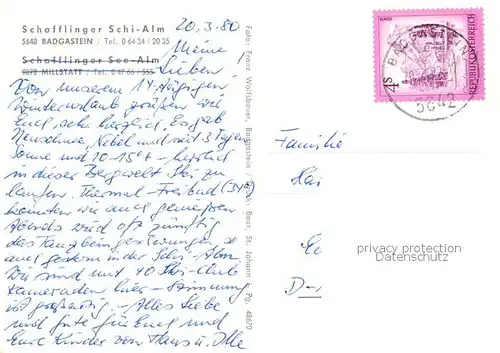 Schafflinger Schi-Alm
5640 BADGASTEIN / Tel. 0 64 34 / 20 35
Schafflinger See-Alm
9872 MILLSTATT / Tel. 0 47 66 / 555
20.3.80
Meine
Lieben!
Von unserem 14 tägigen
Winterurlaub grüßen wir
Euch sehr herzlich. Es gab
Neuschnee, Nebel und seit 3 Tagen
Sonne und 10-15°+ - herrlich
in dieser Bergwelt Ski zu
laufen. Thermal-Freibad
konnten wir auch genießen
Abends wird oft zünftig
das Tanzbein geschwungen so
auch gestern in der Schi-Alm.
Wir sind mit 40 Ski-Club
kameraden hier - Stimmung
ist großartig. - Alles Liebe
und Gute für Euch und
Eure Kinder von Hans u.
Foto: Franz Wolfsbauer, Badgastein / Druck: Baur, St. Johann Pg. 48670
4S
REPUBLIK ÖSTERREICH
BADGASTEIN
5642
Familie
privacy protection
Datenschutz
D-